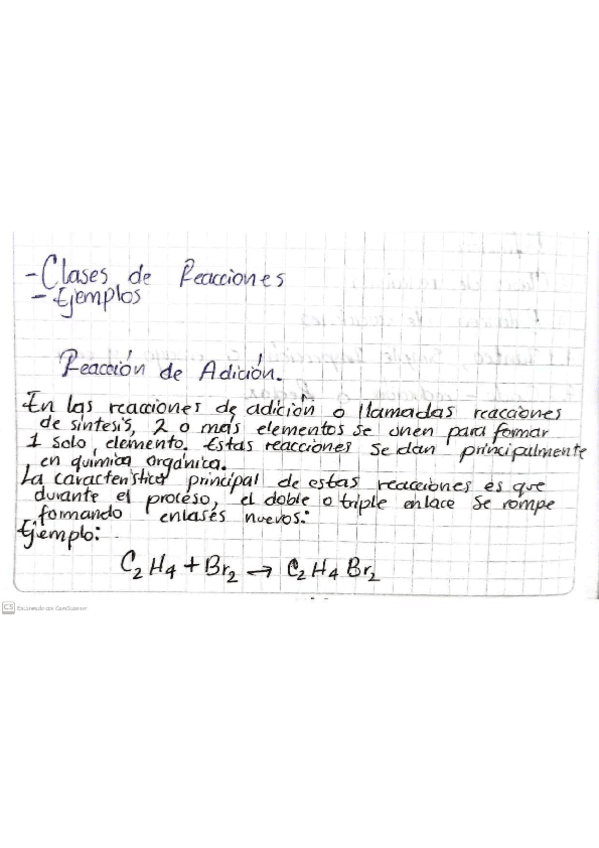 -Clases de Reacciones
- Ejemplos
Reacción de Adición.
En las reacciones de adición o llamadas reacciones
de síntesis, 2 o más elementos se unen para formar
1 solo elemento. Estas reacciones se dan principalmente
en química orgánica.
La característica principal de estas reacciones es que
durante el proceso, el doble o triple enlace se rompe
formando enlasés nuevos:
Ejemplo:
C₂H₄ + Br₂ → C₂H₄Br₂
CS Escaneado con CamScanner